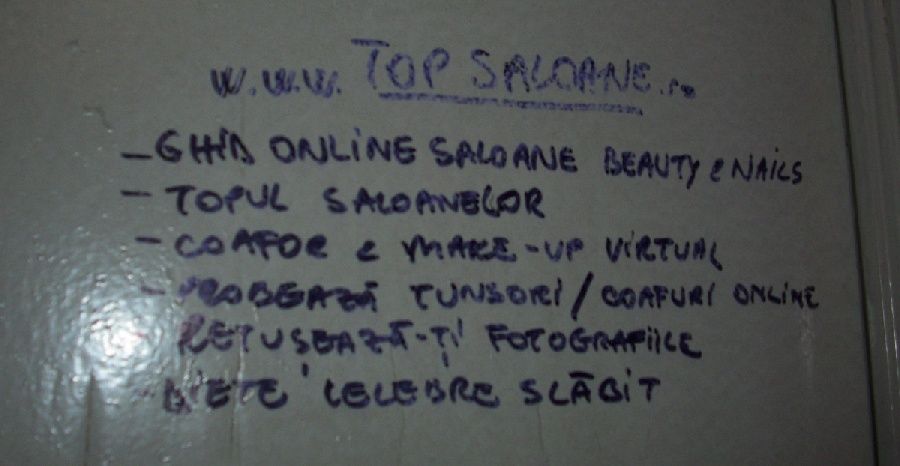 w.w.w. TOP SALOANE.ro
- GHID ONLINE SALOANE BEAUTY & NAILS
- TOPUL SALOANELOR
- COAFOR & MAKE-UP VIRTUAL
- PROBEAZĂ TUNSORI / COAFURI ONLINE
- RETUSEAZĂ-ȚI FOTOGRAFIILE
- DIETE CELEBRE SLĂBIT